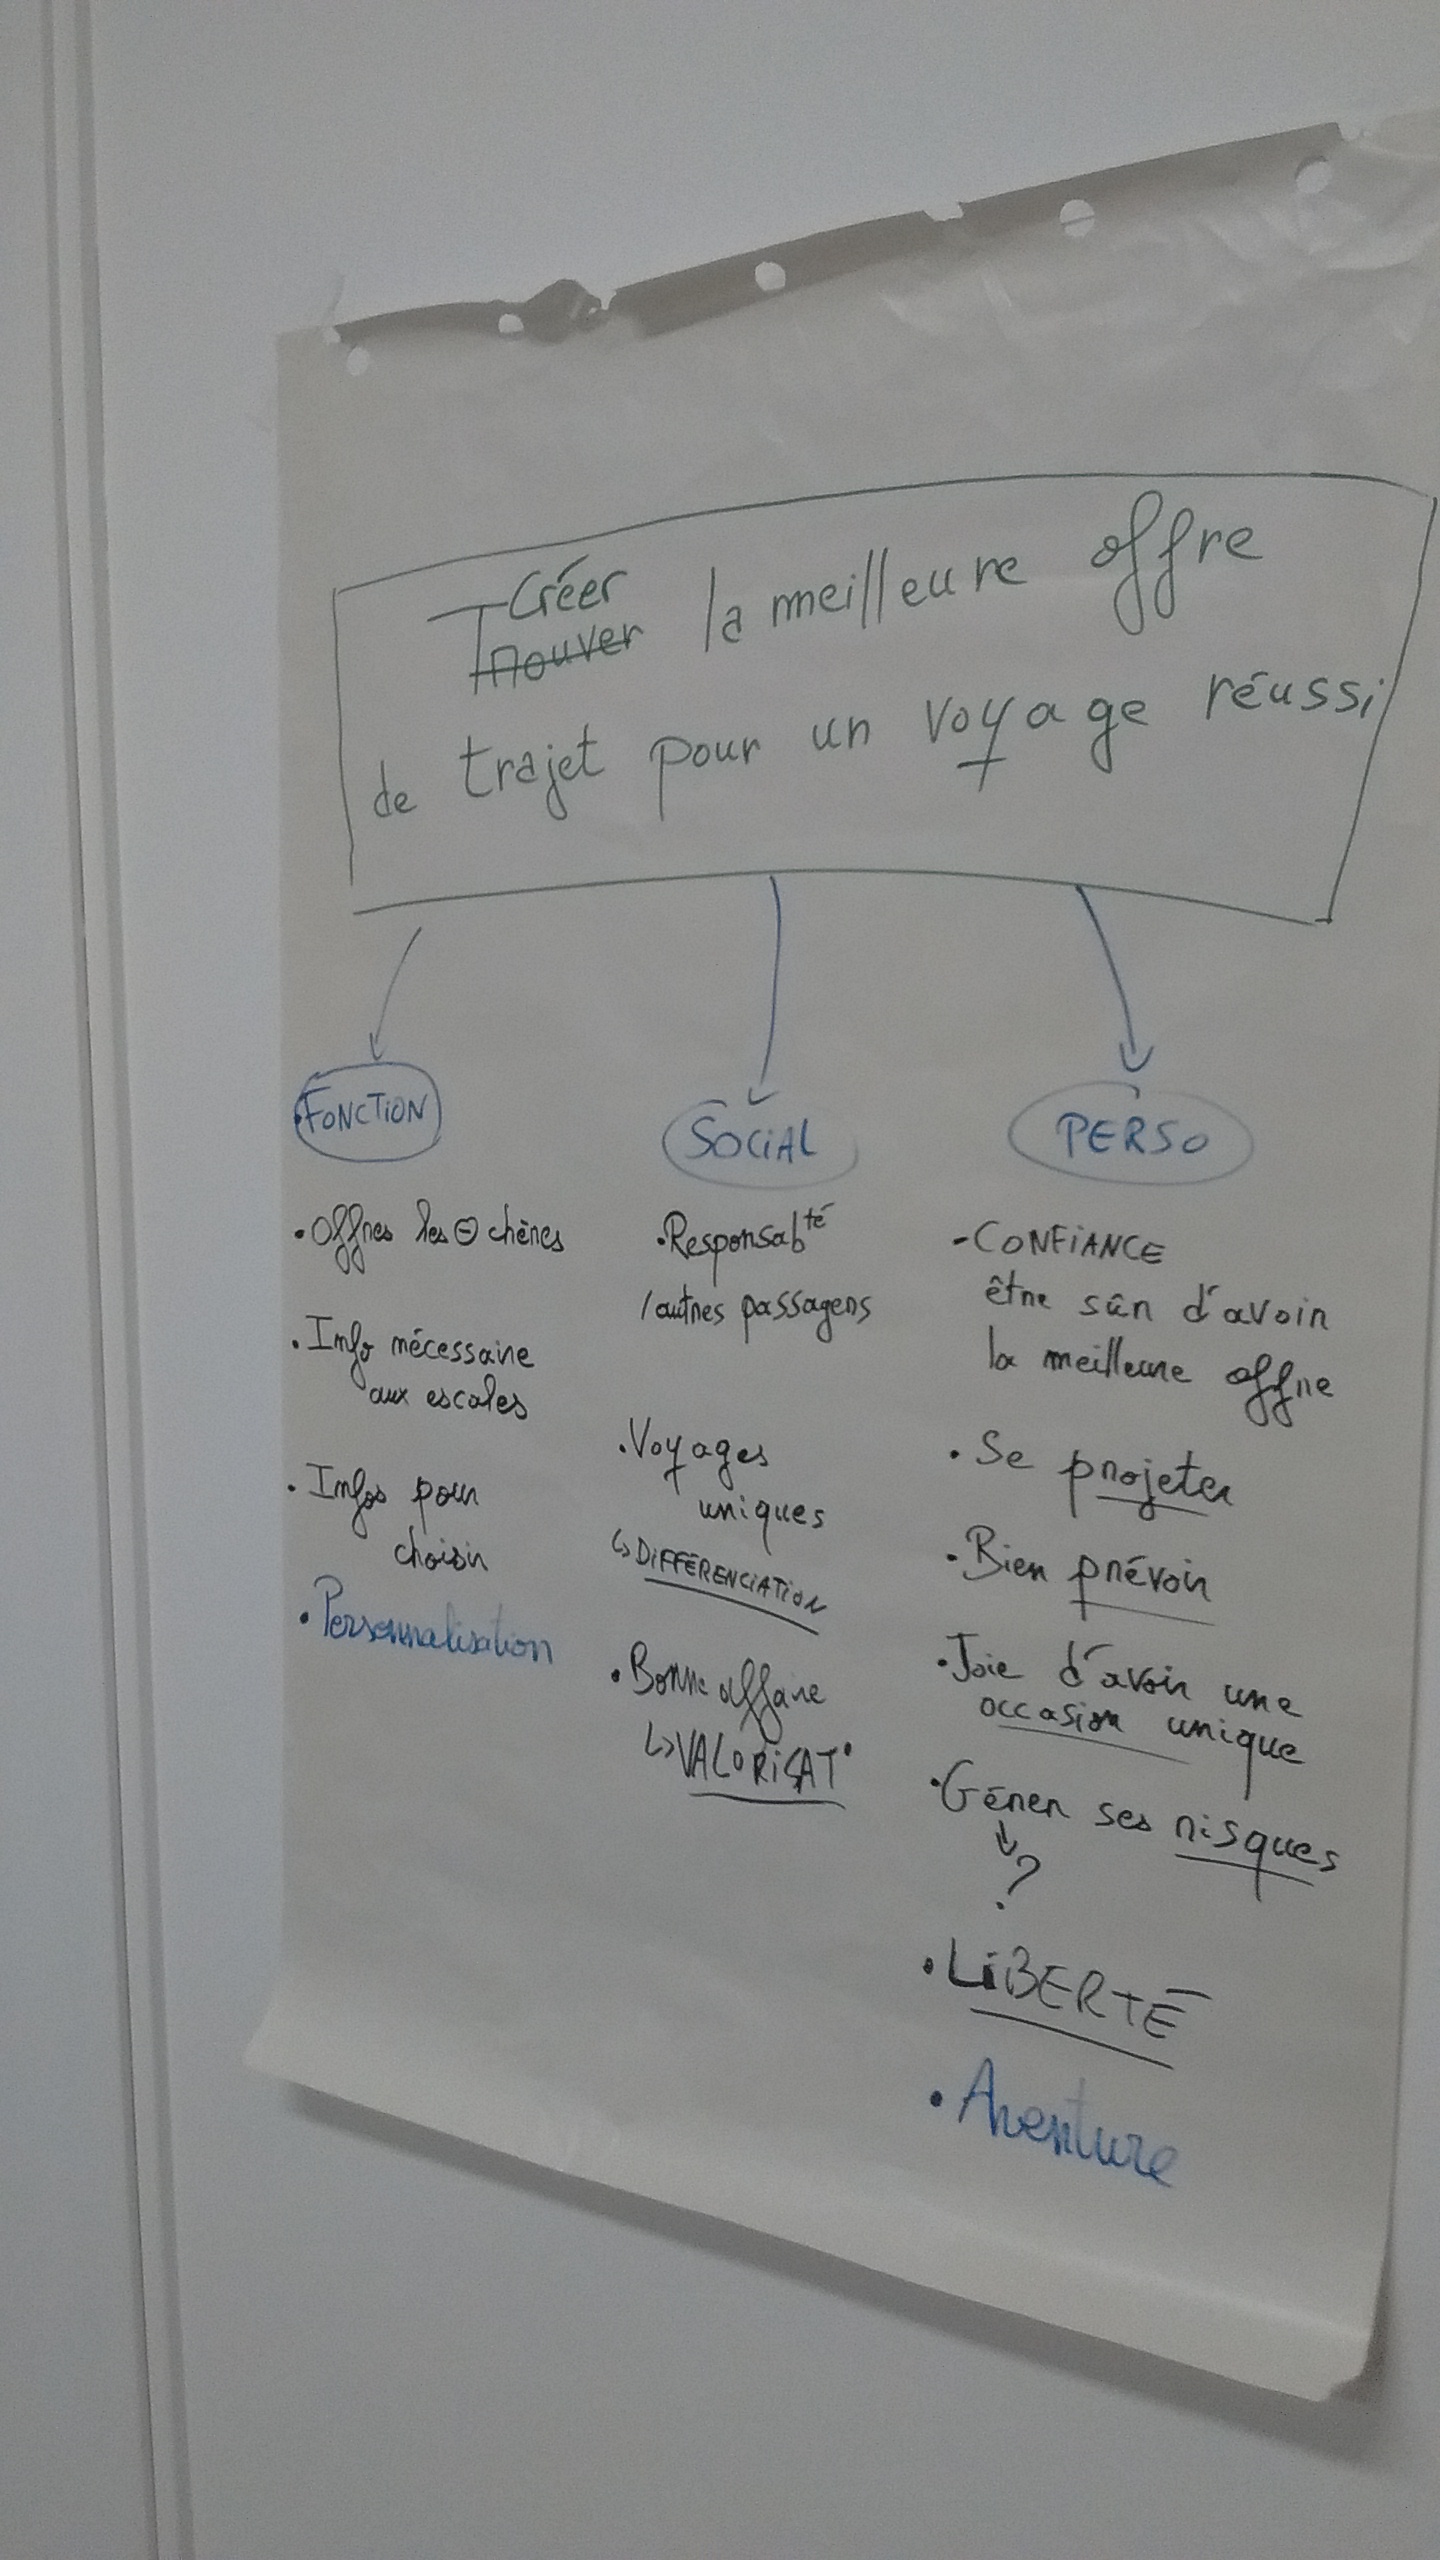 Créer
Trouver la meilleure offre
de trajet pour un voyage réussi
FONCTION
• Offres les ⊖ chères
• Info nécessaire
aux escales
• Infos pour
choisir
• Personnalisation
SOCIAL
• Responsabté
/autres passagers
• Voyages
uniques
↳ DIFFÉRENCIATION
• Bonne affaire
↳ VALORISAT°
PERSO
- CONFIANCE
être sûr d'avoir
la meilleure offre
• Se projeter
• Bien prévoir
• Joie d'avoir une
occasion unique
• Gérer ses risques
↓
?
• LIBERTÉ
• Aventure